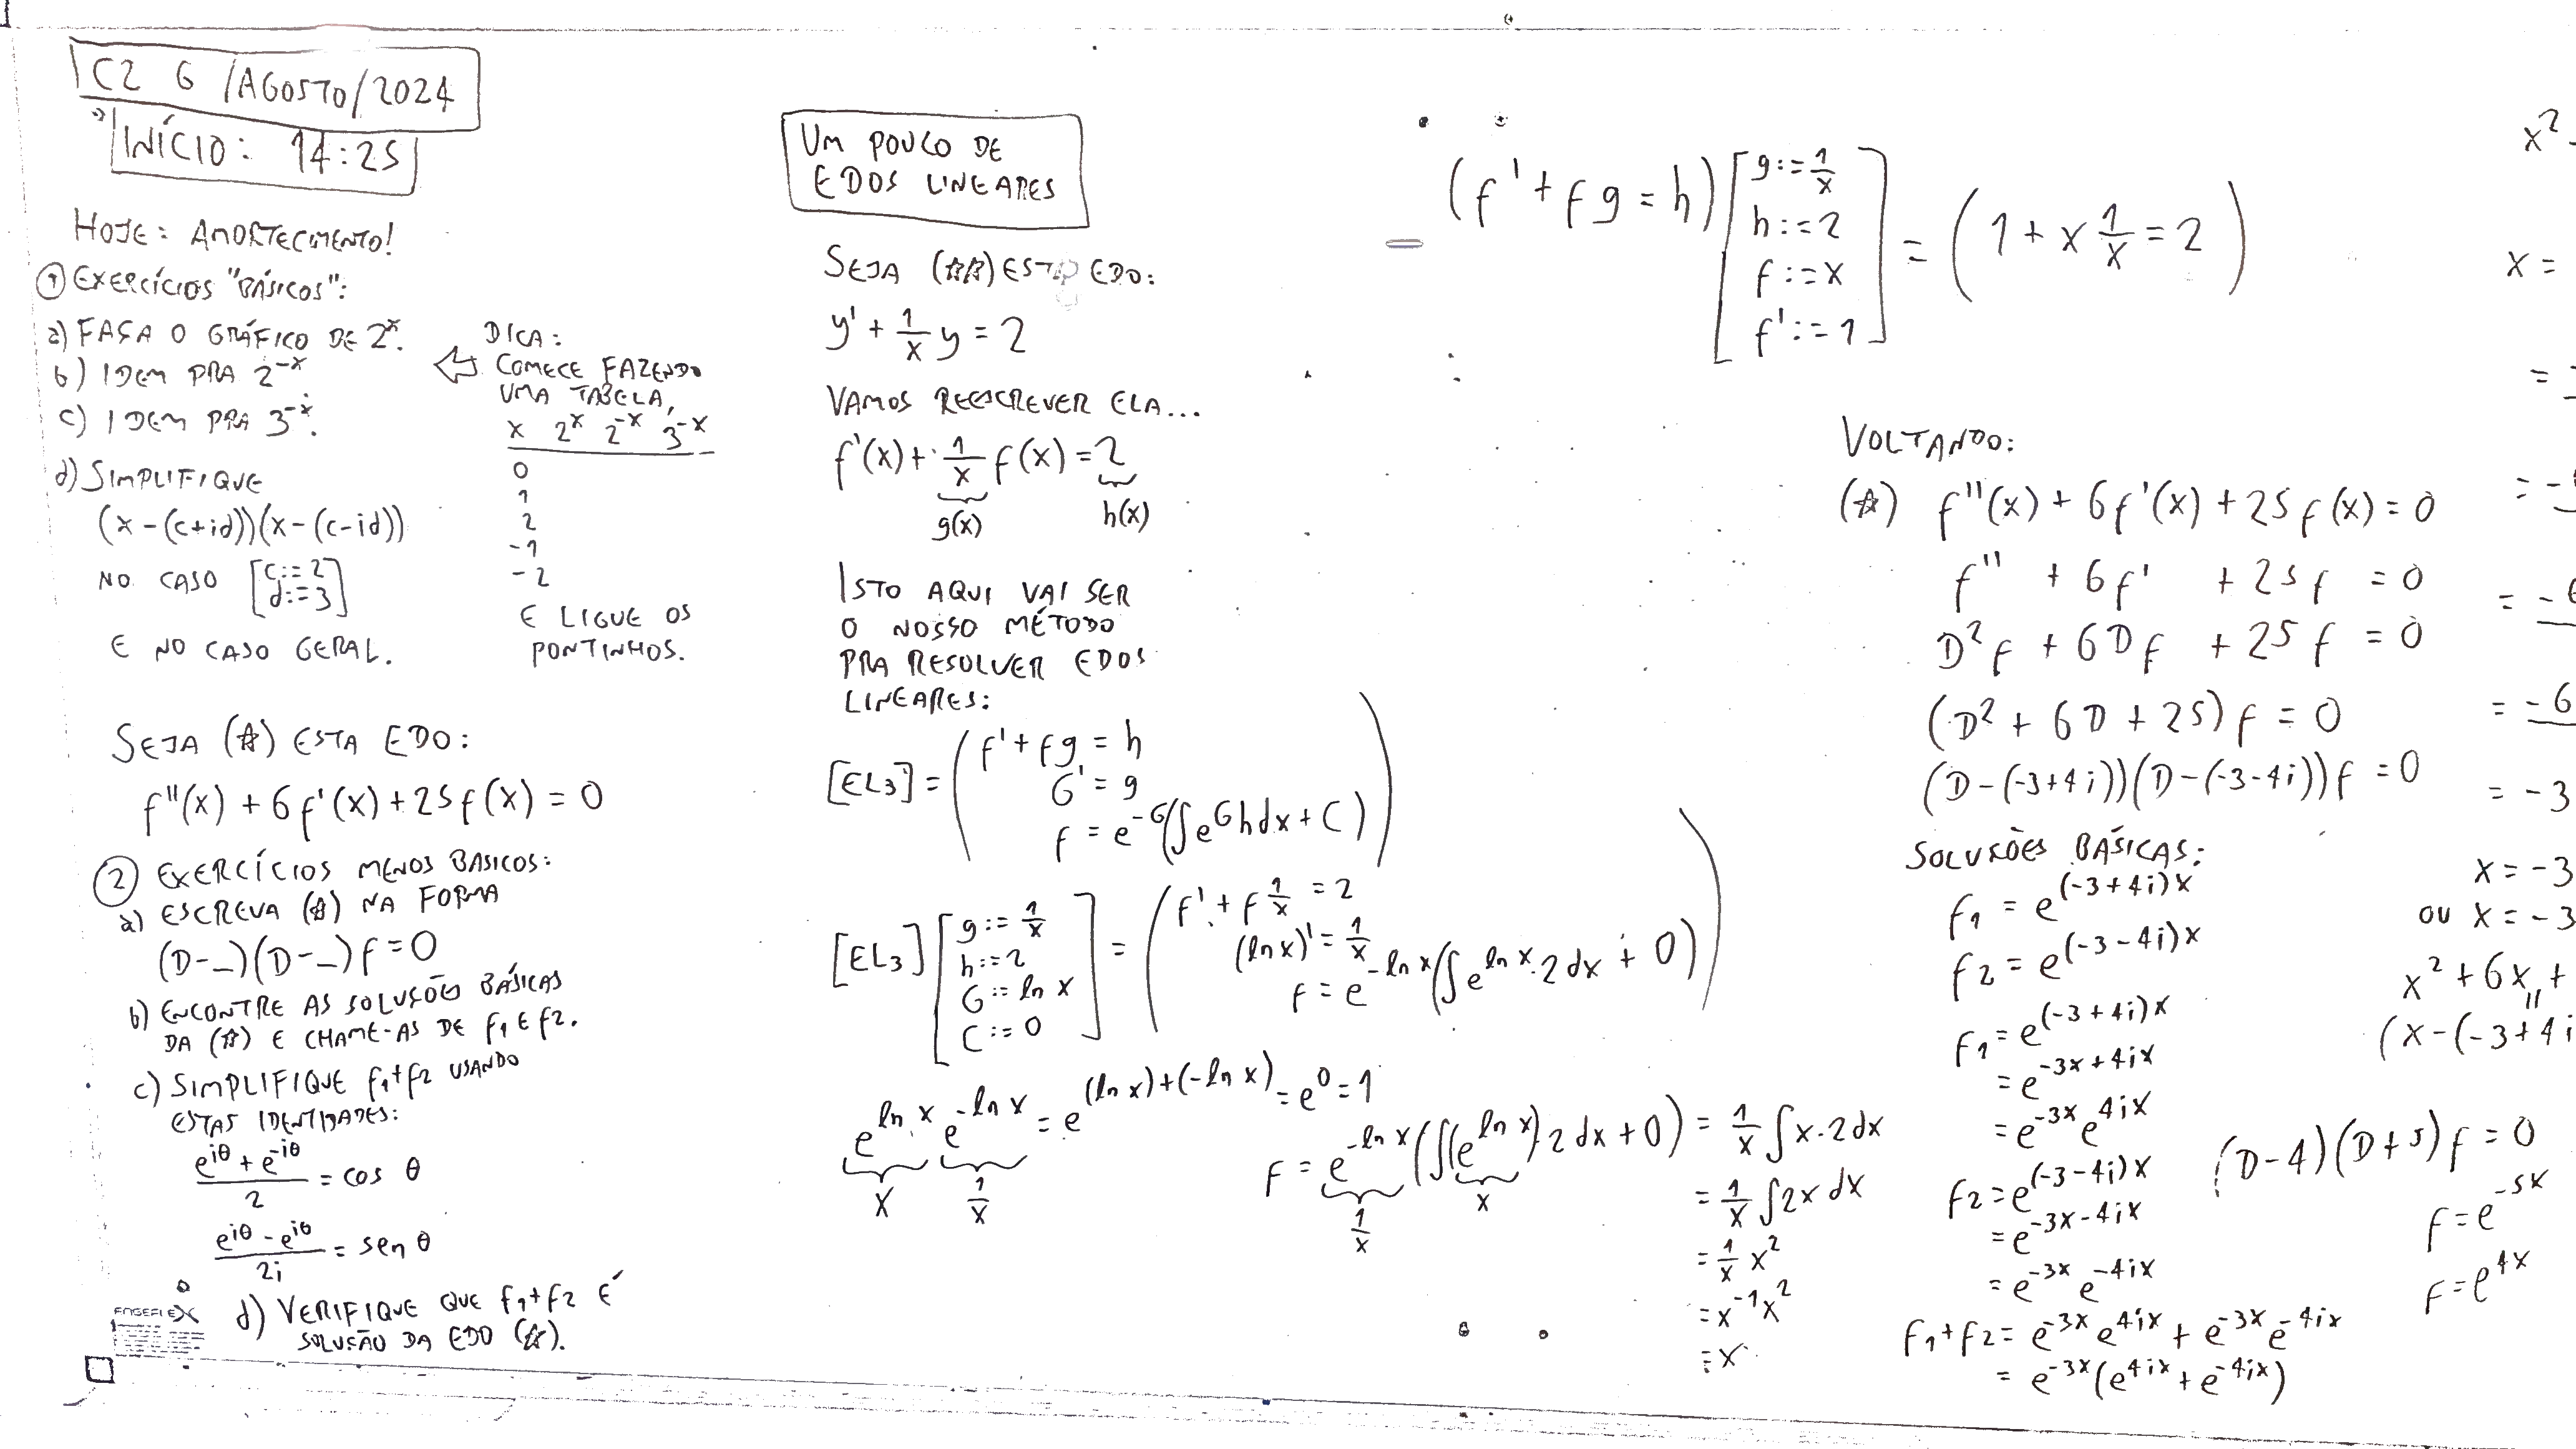 C2 6/AGOSTO/2024
INÍCIO: 14:25
HOJE: AMORTECIMENTO!
① EXERCÍCIOS "BÁSICOS":
a) FAÇA O GRÁFICO DE 2^x.
b) IDEM PRA 2^-x
c) IDEM PRA 3^-x.
d) SIMPLIFIQUE
(x-(c+id))(x-(c-id))
NO CASO [c:=2
d:=3]
E NO CASO GERAL.
DICA:
⇦ COMECE FAZENDO
UMA TABELA,
x 2^x 2^-x 3^-x
0
1
2
-1
-2
E LIGUE OS
PONTINHOS.
SEJA (☆) ESTA EDO:
f''(x) + 6f'(x) + 25f(x) = 0
② EXERCÍCIOS MENOS BÁSICOS:
a) ESCREVA (☆) NA FORMA
(D-_)(D-_)f=0
b) ENCONTRE AS SOLUÇÕES BÁSICAS
DA (☆) E CHAME-AS DE f1 E f2.
c) SIMPLIFIQUE f1+f2 USANDO
ESTAS IDENTIDADES:
(e^iθ + e^-iθ)/2 = cos θ
(e^iθ - e^iθ)/2i = sen θ
d) VERIFIQUE QUE f1+f2 É
SOLUÇÃO DA EDO (☆).
UM POUCO DE
EDOS LINEARES
SEJA (☆☆) ESTA EDO:
y' + 1/x y = 2
VAMOS REESCREVER ELA...
f'(x) + 1/x f(x) = 2
g(x) h(x)
ISTO AQUI VAI SER
O NOSSO MÉTODO
PRA RESOLVER EDOS
LINEARES:
[EL3] = (f'+fg = h
G' = g
f = e^-G(∫e^G h dx + C))
[EL3] [g:= 1/x
h:=2
G:= ln x
C:=0] = (f' + f 1/x = 2
(ln x)' = 1/x
f = e^-ln x (∫e^ln x · 2 dx + 0))
e^ln x e^-ln x = e^(ln x)+(-ln x) = e^0 = 1
x 1/x
f = e^-ln x (∫(e^ln x)·2 dx + 0) = 1/x ∫x·2 dx
1/x x
= 1/x ∫2x dx
= 1/x x^2
= x^-1 x^2
= x
(f'+fg = h) [g:= 1/x
h:=2
f:=x
f':=1] = (1 + x 1/x = 2)
VOLTANDO:
(☆) f''(x) + 6f'(x) + 25f(x) = 0
f'' + 6f' + 25f = 0
D^2 f + 6Df + 25f = 0
(D^2 + 6D + 25)f = 0
(D-(-3+4i))(D-(-3-4i))f = 0
SOLUÇÕES BÁSICAS:
f1 = e^(-3+4i)x
f2 = e^(-3-4i)x
f1 = e^(-3+4i)x
= e^-3x+4ix
= e^-3x e^4ix
f2 = e^(-3-4i)x
= e^-3x-4ix
= e^-3x e^-4ix
f1+f2 = e^-3x e^4ix + e^-3x e^-4ix
= e^-3x (e^4ix + e^-4ix)
x^2
x =
=
= -
= -6
= -3
x = -3
OU x = -3
x^2 + 6x +
(x-(-3+4i
(D-4)(D+5)f = 0
f = e^-5x
f = e^4x